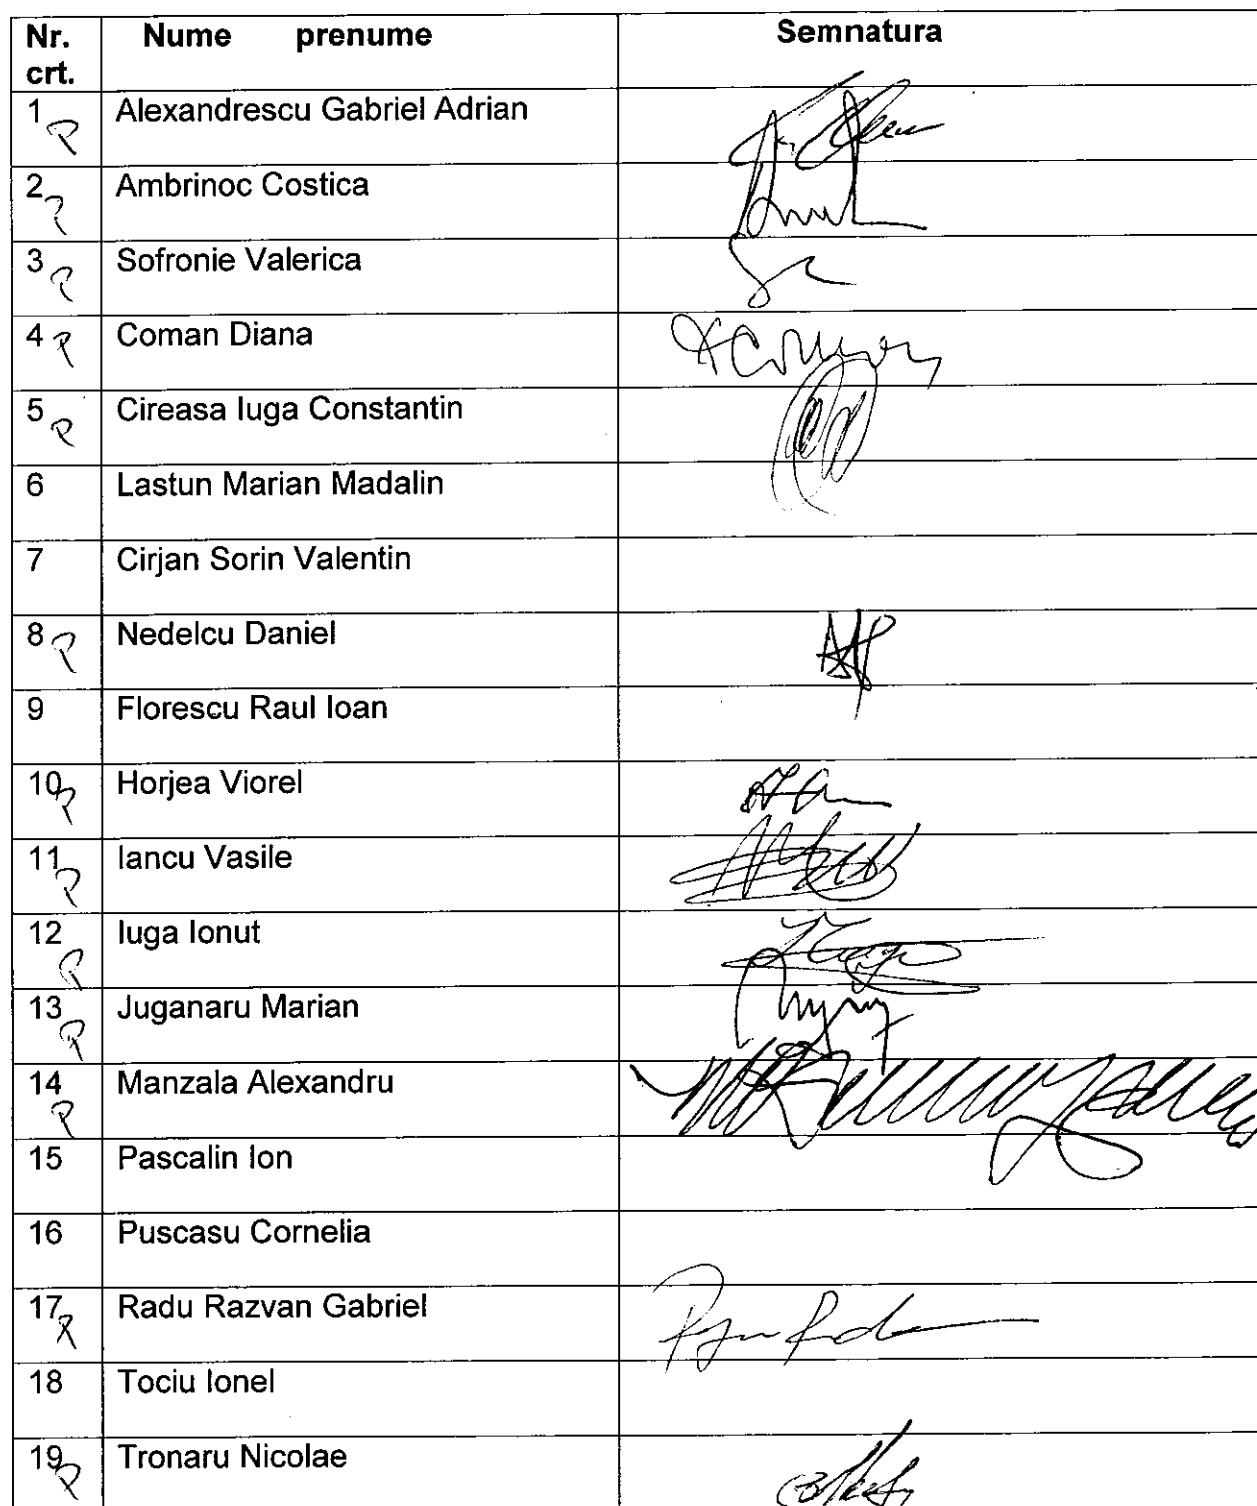 Nr. crt. Nume prenume Semnatura
1 P Alexandrescu Gabriel Adrian
2 P Ambrinoc Costica
3 P Sofronie Valerica
4 P Coman Diana
5 P Cireasa Iuga Constantin
6 Lastun Marian Madalin
7 Cirjan Sorin Valentin
8 P Nedelcu Daniel
9 Florescu Raul Ioan
10 P Horjea Viorel
11 P Iancu Vasile
12 P Iuga Ionut
13 P Juganaru Marian
14 P Manzala Alexandru
15 Pascalin Ion
16 Puscasu Cornelia
17 P Radu Razvan Gabriel
18 Tociu Ionel
19 P Tronaru Nicolae